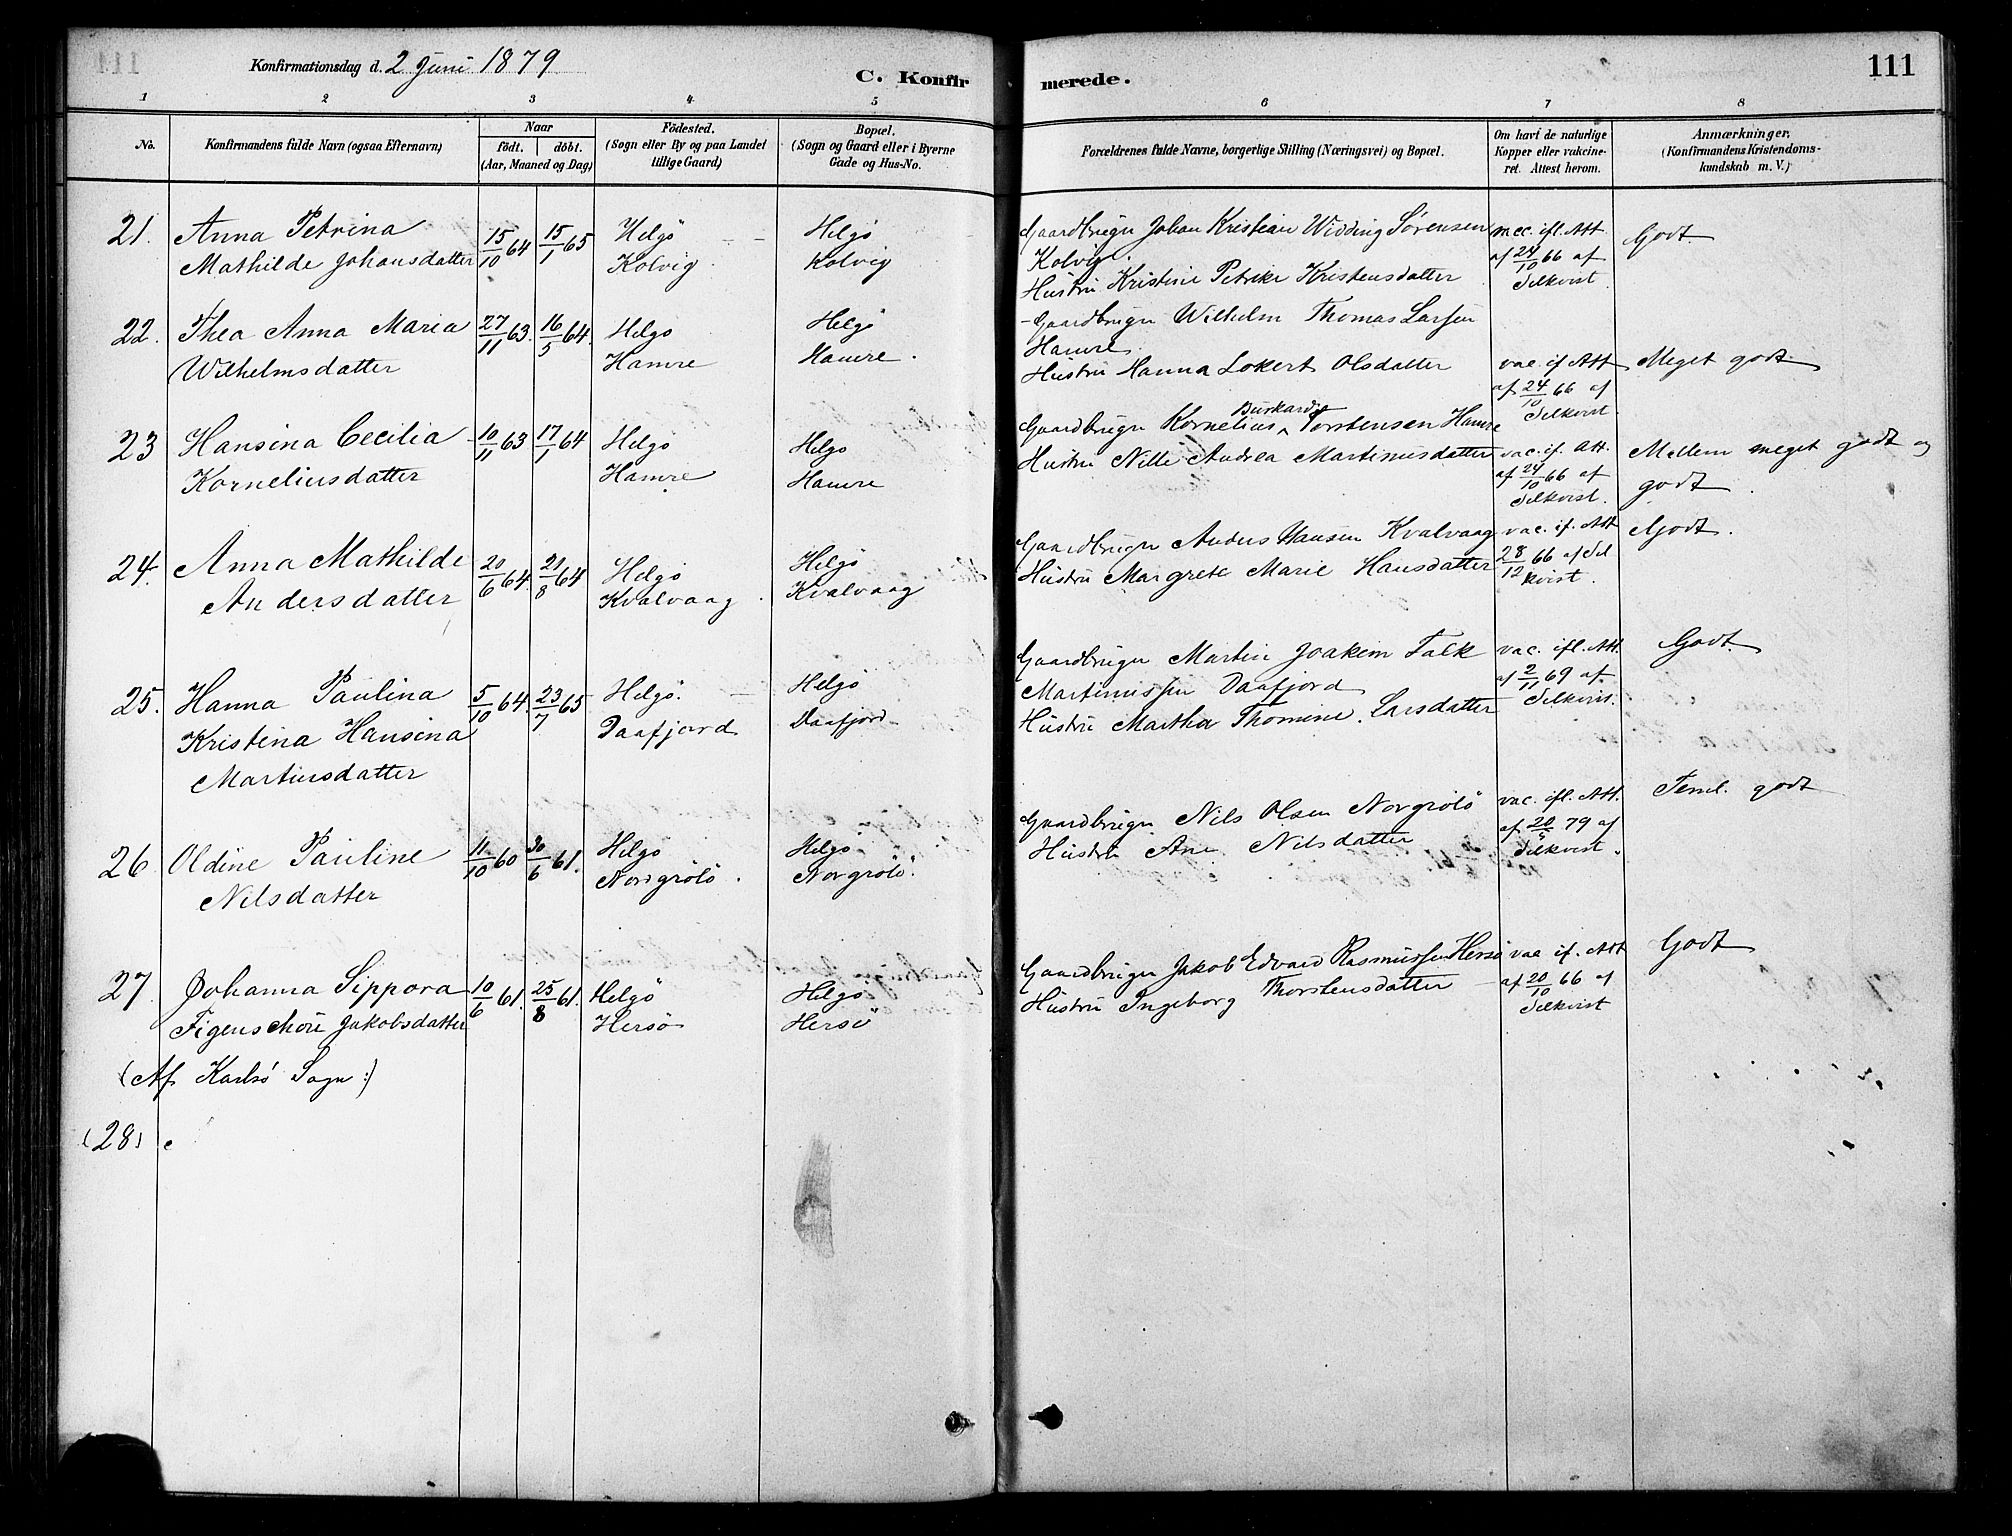 111
Konfirmationsdag d. 2 Juni 1879
C. Konfirmerede.
1 2 3 4. 5 6 7 8
No.
Konfirmandens fulde Navn (ogsaa Efternavn)
Naar
födt. döbt.
(Aar, Maaned og Dag)
Födested.
(Sogn eller By og paa Landet
tillige Gaard)
Bopæl.
(Sogn og Gaard eller i Byerne
Gade og Hus-No.
Forældrenes fulde Navne, borgerlige Stilling (Næringsvei) og Bopæl.
Om havt de naturlige
Kopper eller vakcine-
ret. Attest herom.
Anmærkninger.
(Konfirmandens Kristendoms-
kundskab m. V.)
21. Anna Petrina 15/10 64 15/1 65 Helgö Helgö Gaardbruger Johan Kristian Widding Sörensen vac. ifl. Att. Godt.
Mathilde Johansdatter Kolvig Kolvig Kolvig. af 24/10 66 af
Hustru Kristine Petrike Kristensdatter Silkvist
22. Thea Anna Maria 27/11 63. 16/5 64. Helgö Helgö Gaardbruger Wilhelm Thomas Larsen
Wilhelmsdatter Hamre Hamre. Hamre.
Hustru Hanna Lokert Olsdatter vac. if. Att Meget godt.
af 24/10 66 af
Silkvist
23 Hansina Cecilia 10/11 63 17/1 64 Helgö Helgö Gaardbruger Kornelius Burkardus Torstensen Hamre
Korneliusdatter Hamre Hamre Hustru Nille Andrea Martinusdatter vac. if. Att. Mellem meget godt og
af 24/10 66 af godt.
Silkvist.
24. Anna Mathilde 20/6 64. 21/8 64 Helgö Helgö Gaardbruger Anders Hansen Kvalvaag vac. if. Att Godt.
Andersdatter Kvalvaag Kvalvaag Hustru Margrete Marie Hansdatter 28/12 66 af Sil
kvist.
25. Hanna Paulina 5/10 64. 23/7 65 Helgö. Helgö Gaardbruger Martin Joakim Falk vac. ifl. Att. Godt.
Kristina Hansina Daafjord Daafjord Martinussen Daafjord af 2/11 69 af
Martinsdatter Hustru Martha Thomine Larsdatter Silkvist.
26. Oldine Pauline 11/10 60 30/6 61. Helgö Helgö Gaardbruger Nils Olsen Norgrölö vac. ifl. Att. Teml. godt
Nilsdatter Nordgrölö. Norgrölö. Hustru Ane Nilsdatter af 20/5 79 af
Silkvist.
27. Johanna Sippora 10/6 61. 25/8 61. Helgö Helgö Gaardbruger Jakob Edvard Rasmussen Hersö vac. if. Att Godt
Figenschou Jakobsdatter Hersö Hersö Hustru Ingeborg Thorstensdatter af 20/10 66 af
(Af Karlsö Sogn:) Silkvist
(28)